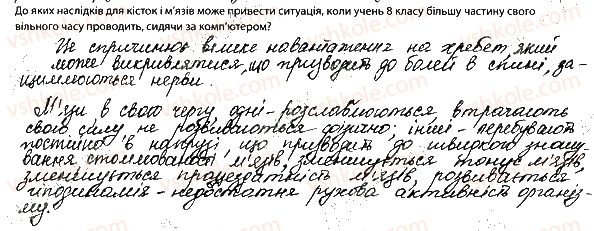 До яких наслідків для кісток і м'язів може привести ситуація, коли учень 8 класу більшу частину свого
вільного часу проводить, сидячи за комп'ютером?
Це спричинює велике навантаження на хребет, який
може викривлятися, що призводить до болей в спині, за-
щимлюються нерви.
М'язи в свою чергу, одні - розслаблюються втрачають
свою силу не розвиваються фізично; інші - перебувають
постійно в напрузі що призводить до швидкого зношу-
вання стомлюваності м'язів, зменшується тонус м'язів,
зменшується працездатність м'язів, розвивається
гіподинамія - недостатня рухова активність організ-
му.